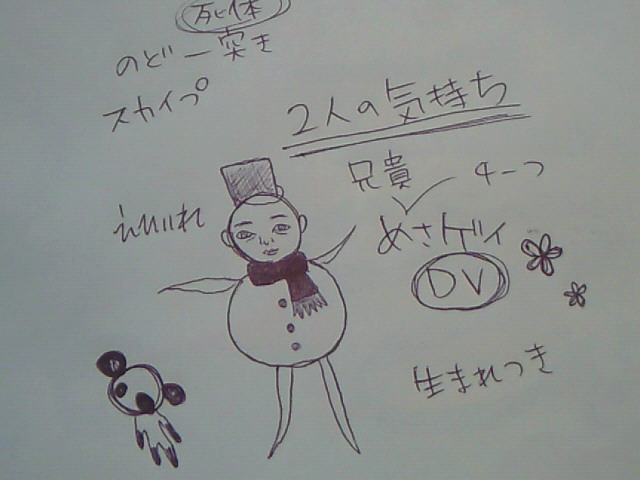 死体
のど一突き
スカイプ
2人の気持ち
兄貴
4一つ
めさゲイ
DV
生まれつき